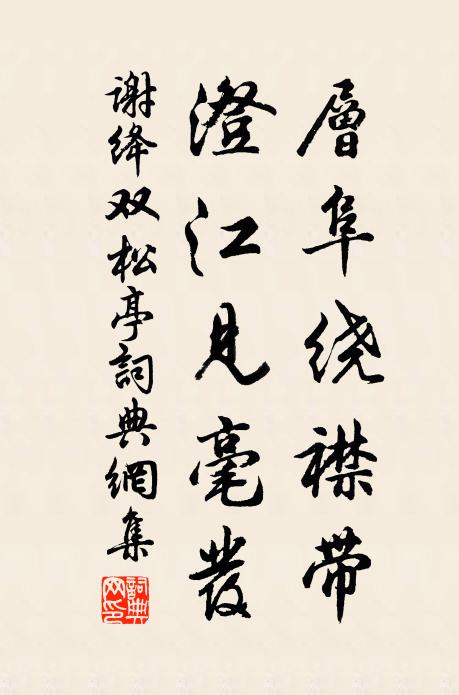 層阜绕襟帶
澄江見毫發
谢绛双松亭詞典網集
詞典网印